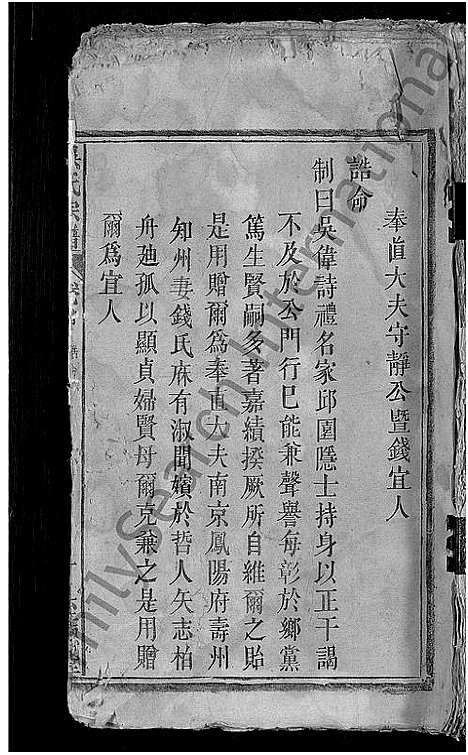 奉直大夫守靜公暨錢宜人
誥命
制曰吳偉詩禮名家邱園隱士持身以正干謁
不及於公門行巳能兼聲譽每彰於鄉黨
篤生賢嗣多著嘉績揆厥所自維爾之貽
是用贈爾爲奉直大夫南京鳳陽府壽州
知州妻錢氏庥有淑聞嬪於哲人矢志柏
舟廸孤以顯貞婦賢母爾克兼之是用贈
爾爲宜人
吳氏宗譜
FamilySearch International